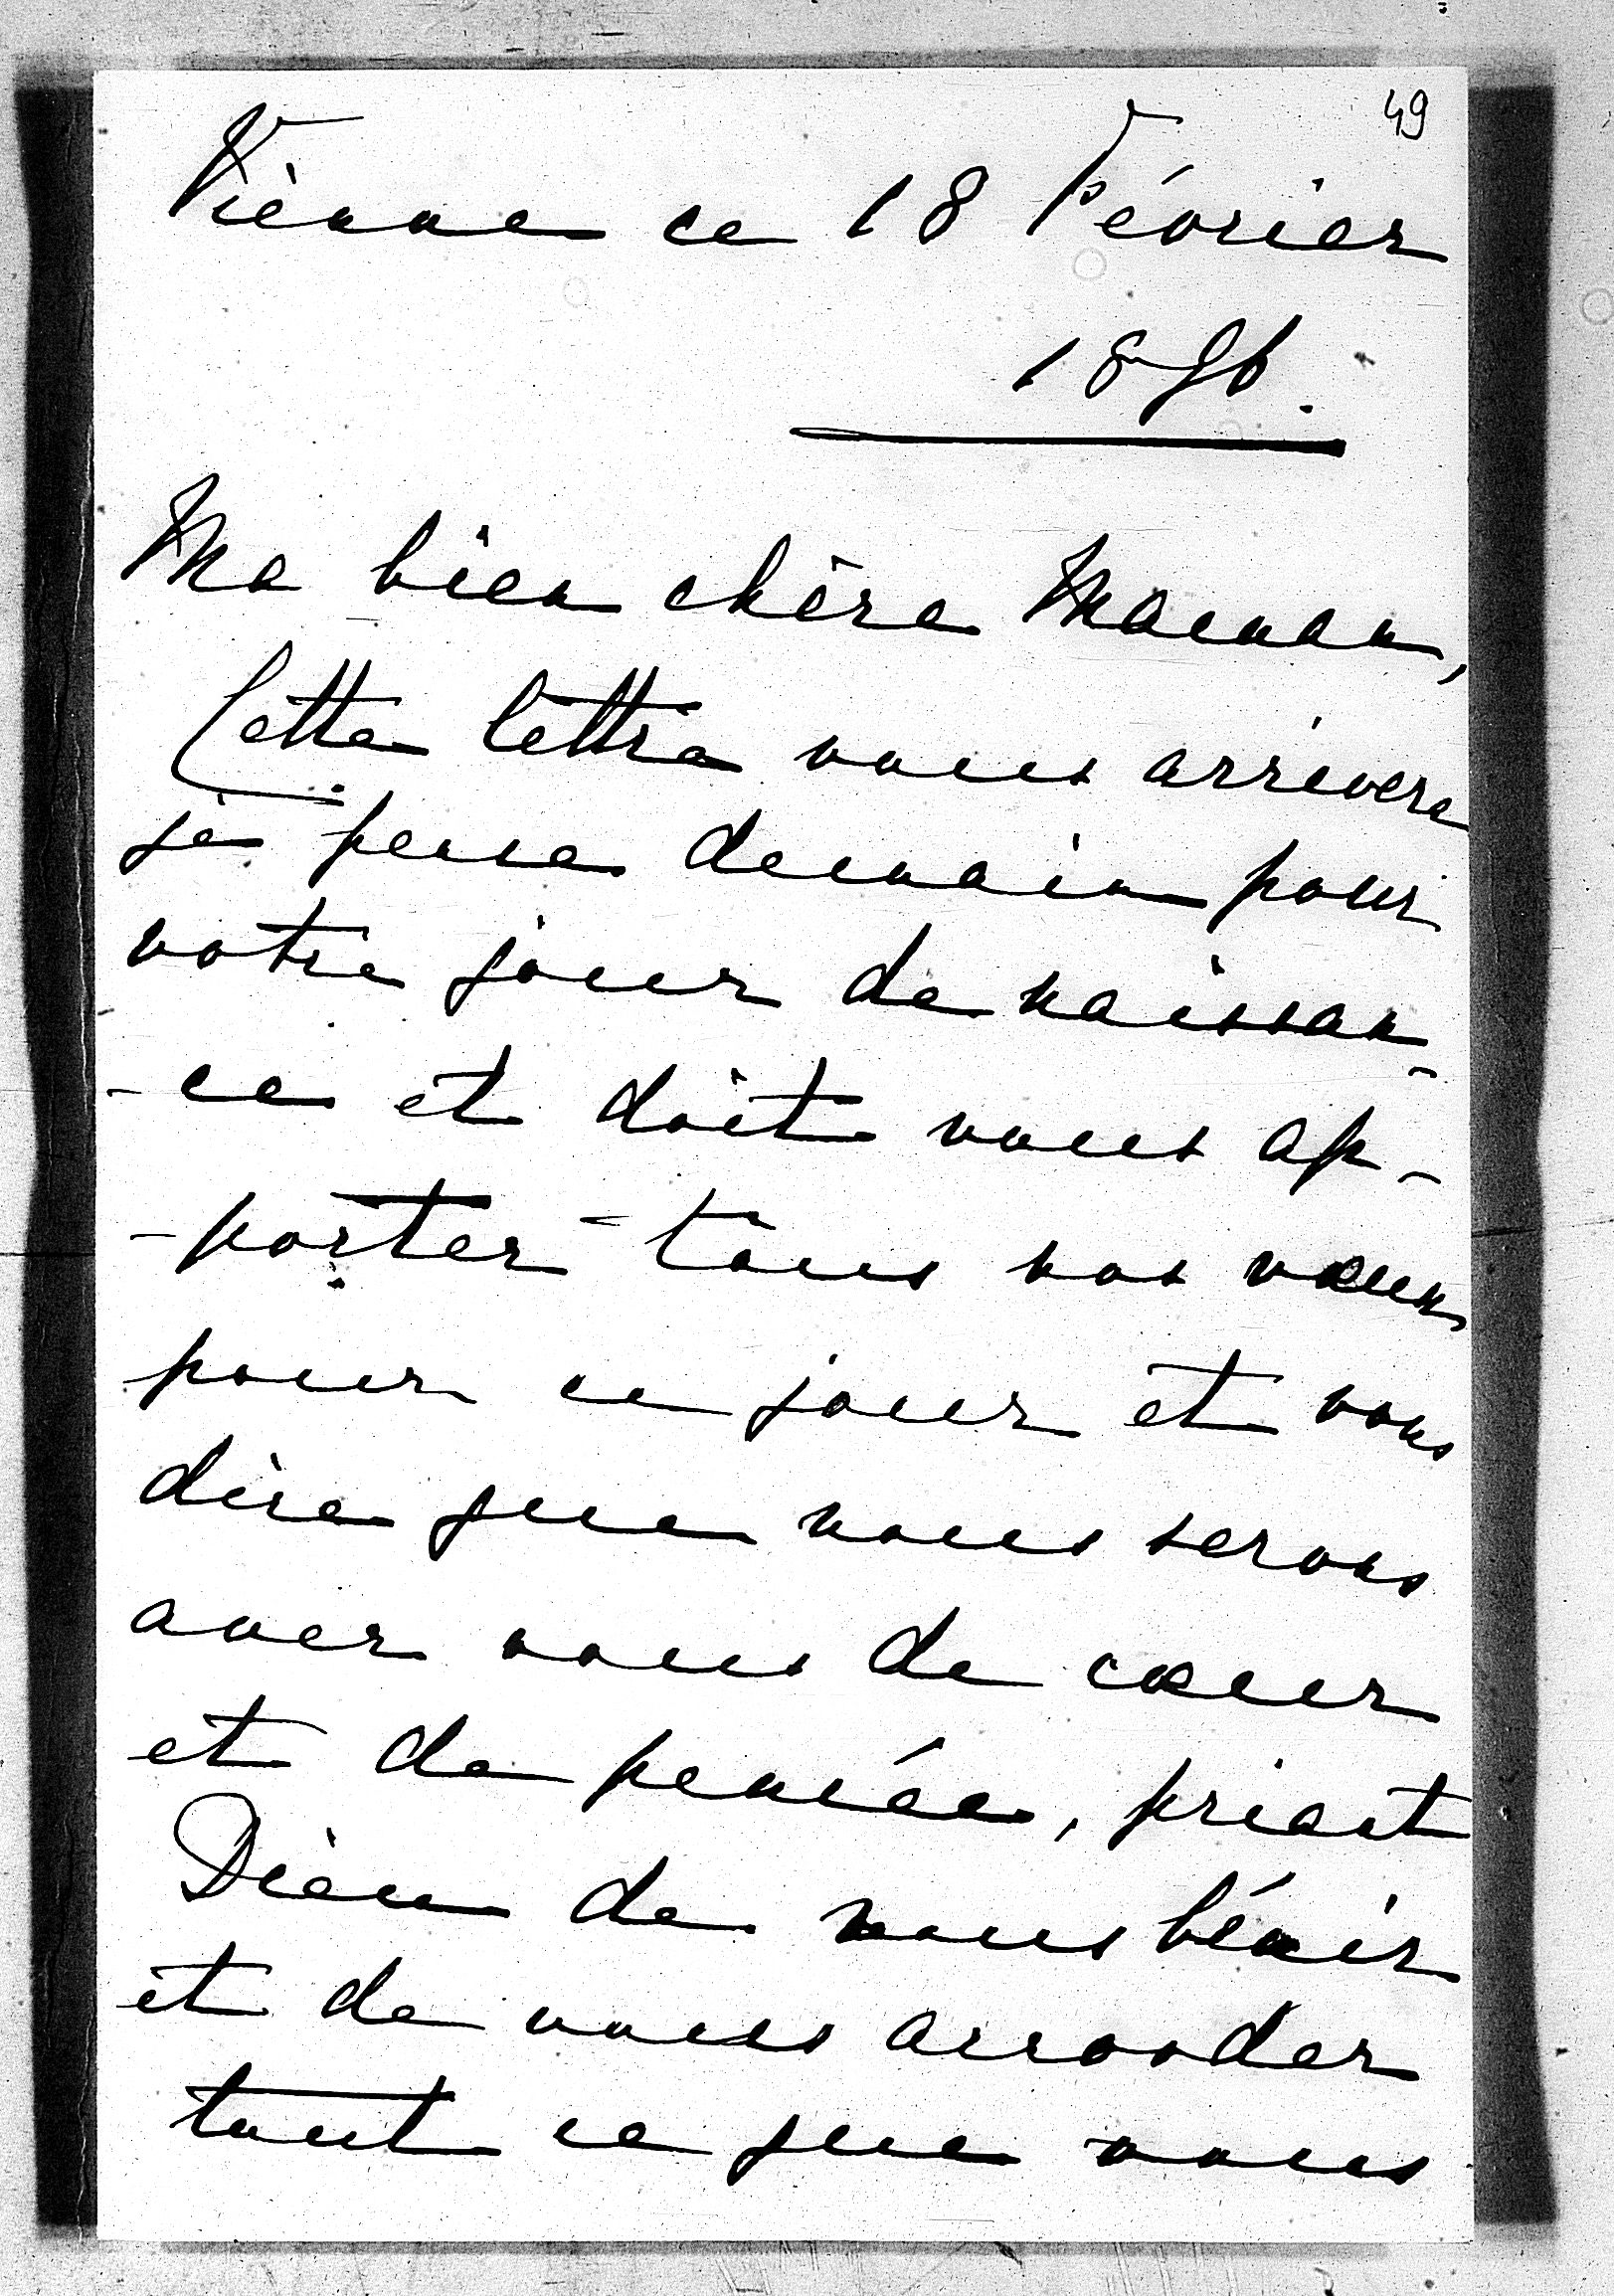 49
Vienne ce 18 Février
1896.
Ma bien chère Maman,
Cette lettre vous arrivera
je pense demain pour
votre jour de naissan-
-ce et doit vous ap-
-porter tous nos vœux
pour ce jour et vous
dire que nous serons
avec vous de cœur
et de pensée, priant
Dieu de vous bénir
et de vous accorder
tout ce que vous